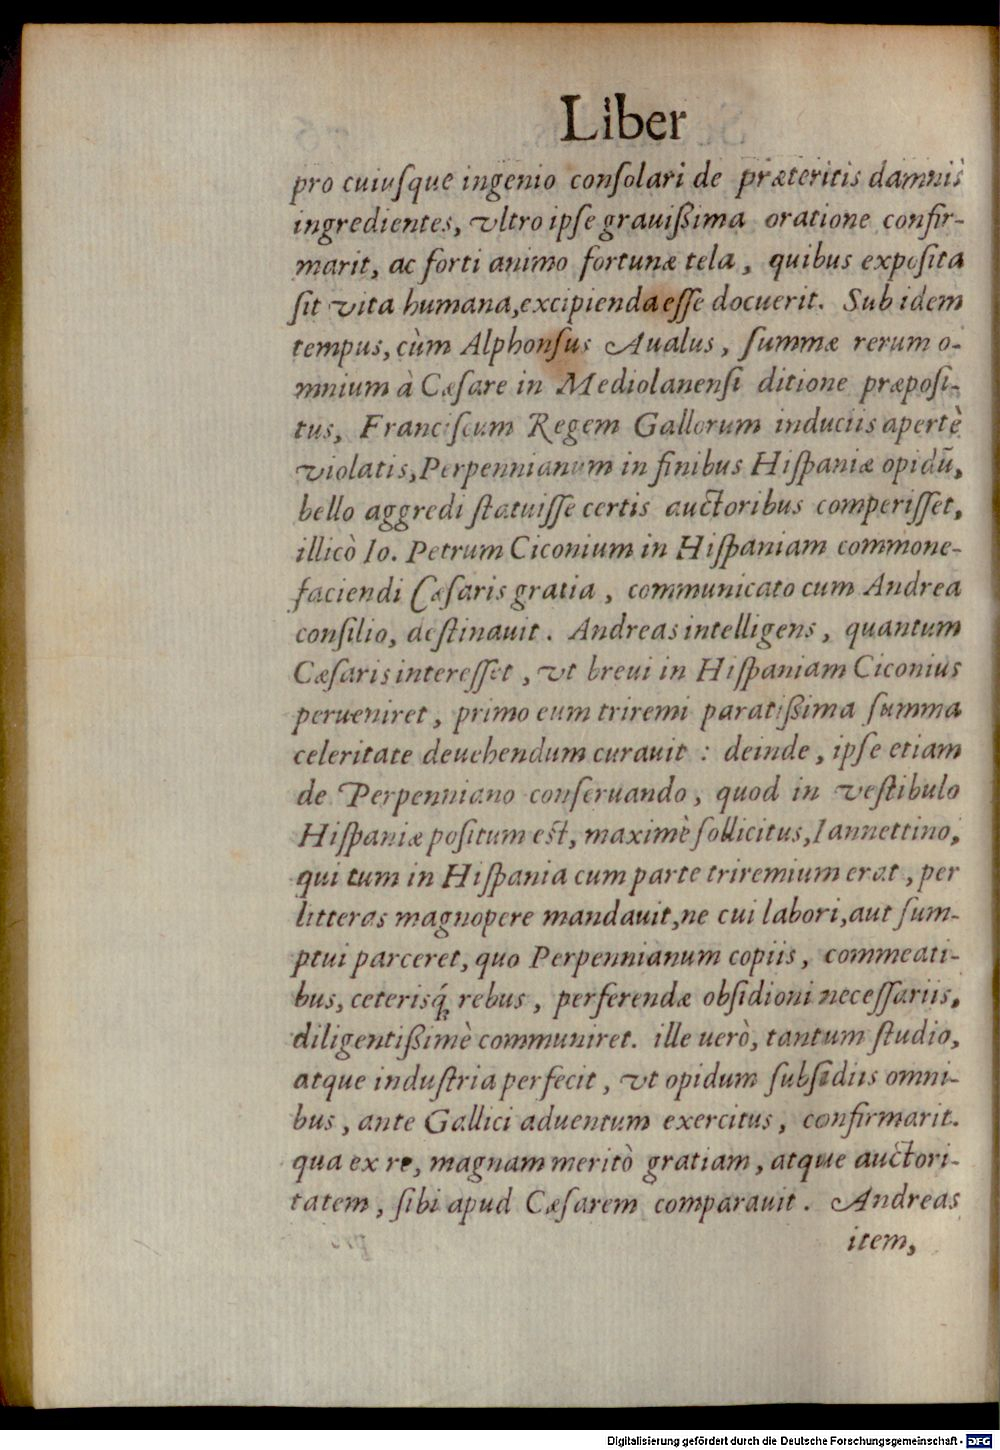 Liber
pro cuiuſque ingenio conſolari de præteritis damnis
ingredientes, vltro ipſe grauißima oratione confir-
marit, ac forti animo fortunæ tela, quibus expoſita
ſit vita humana, excipienda eſſe docuerit. Sub idem
tempus, cùm Alphonſus Aualus, ſummæ rerum o-
mnium à Cæſare in Mediolanenſi ditione præpoſi-
tus, Franciſcum Regem Gallorum induciis apertè
violatis, Perpennianum in finibus Hiſpaniæ opidū,
bello aggredi ſtatuiſſe certis auctoribus comperiſſet,
illicò Io. Petrum Ciconium in Hiſpaniam commone-
faciendi Cæſaris gratia, communicato cum Andrea
conſilio, deſtinauit. Andreas intelligens, quantum
Cæſaris intereſſet, vt breui in Hiſpaniam Ciconius
perueniret, primo eum triremi paratißima ſumma
celeritate deuehendum curauit : deinde, ipſe etiam
de Perpenniano conſeruando, quod in veſtibulo
Hiſpaniæ poſitum eſt, maximè ſollicitus, Iannettino,
qui tum in Hiſpania cum parte triremium erat, per
litteras magnopere mandauit, ne cui labori, aut ſum-
ptui parceret, quo Perpennianum copiis, commeati-
bus, ceterisq́; rebus, perferendæ obſidioni neceſſariis,
diligentißimè communiret. ille uerò, tantum ſtudio,
atque induſtria perfecit, vt opidum ſubſidiis omni-
bus, ante Gallici aduentum exercitus, confirmarit.
qua ex re, magnam meritò gratiam, atque auctori-
tatem, ſibi apud Cæſarem comparauit. Andreas
item,
Digitalisierung gefördert durch die Deutsche Forschungsgemeinschaft - DFG